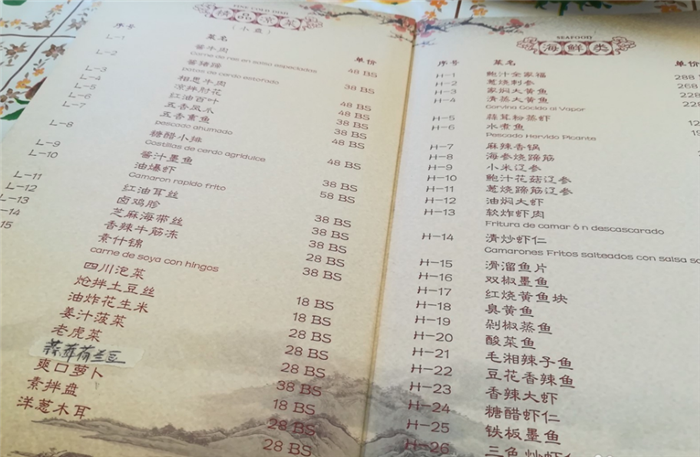 FINE COLD DISH
精品凉菜
（小盘）
序号 菜名 单价
L-1 酱牛肉 48 BS
Carne de res en salsa especiadas
L-2 酱猪蹄
Patas de cerdo estofado
相思牛肉 48 BS
凉拌肘花 38 BS
红油百叶 48 BS
五香凤爪 48 BS
五香熏鱼 38 BS
pescado ahumado
L-8 糖醋小排 48 BS
Costillas de cerdo agridulce
L-9 酱汁墨鱼
L-10 油爆虾
Camaron rapido frito
L-11 红油耳丝
L-12 卤鸡胗
芝麻海带丝
香辣牛筋冻
15 素什锦
carne de soya con hingos
四川泡菜
炝拌土豆丝
油炸花生米
姜汁菠菜
老虎菜
蒜蓉荷兰豆
爽口萝卜
素拌盘
洋葱木耳
38 BS
58 BS
38 BS
38 BS
38 BS
28 BS
38 BS
18 BS
18 BS
28 BS
28 BS
28 BS
38 BS
18 BS
28 BS
28 BS
SEAFOOD
海鲜类
序号 菜名 单价
H-1 鲍汁全家福 288
H-2 葱烧刺参 268
H-3 家焖大黄鱼 228
H-4 清蒸大黄鱼
Corvina Cocida al Vapor
H-5 蒜茸粉蒸虾
H-6 水煮鱼
Pescado Hervido Picante
H-7 麻辣香锅
H-8 海参烧蹄筋
H-9 小米辽参
H-10 鲍汁花菇辽参
H-11 葱烧蹄筋辽参
H-12 油焖大虾
H-13 软炸虾肉
Fritura de camar ó n descascarado
H-14 清炒虾仁
Camarones Fritos salteados con salsa
H-15 滑溜鱼片
H-16 双椒墨鱼
H-17 红烧黄鱼块
H-18 臭黄鱼
H-19 剁椒蒸鱼
H-20 酸菜鱼
H-21 毛湘辣子鱼
H-22 豆花香辣鱼
H-23 香辣大虾
H-24 糖醋虾仁
H-25 铁板墨鱼
H-26 三鱼炒虾仁